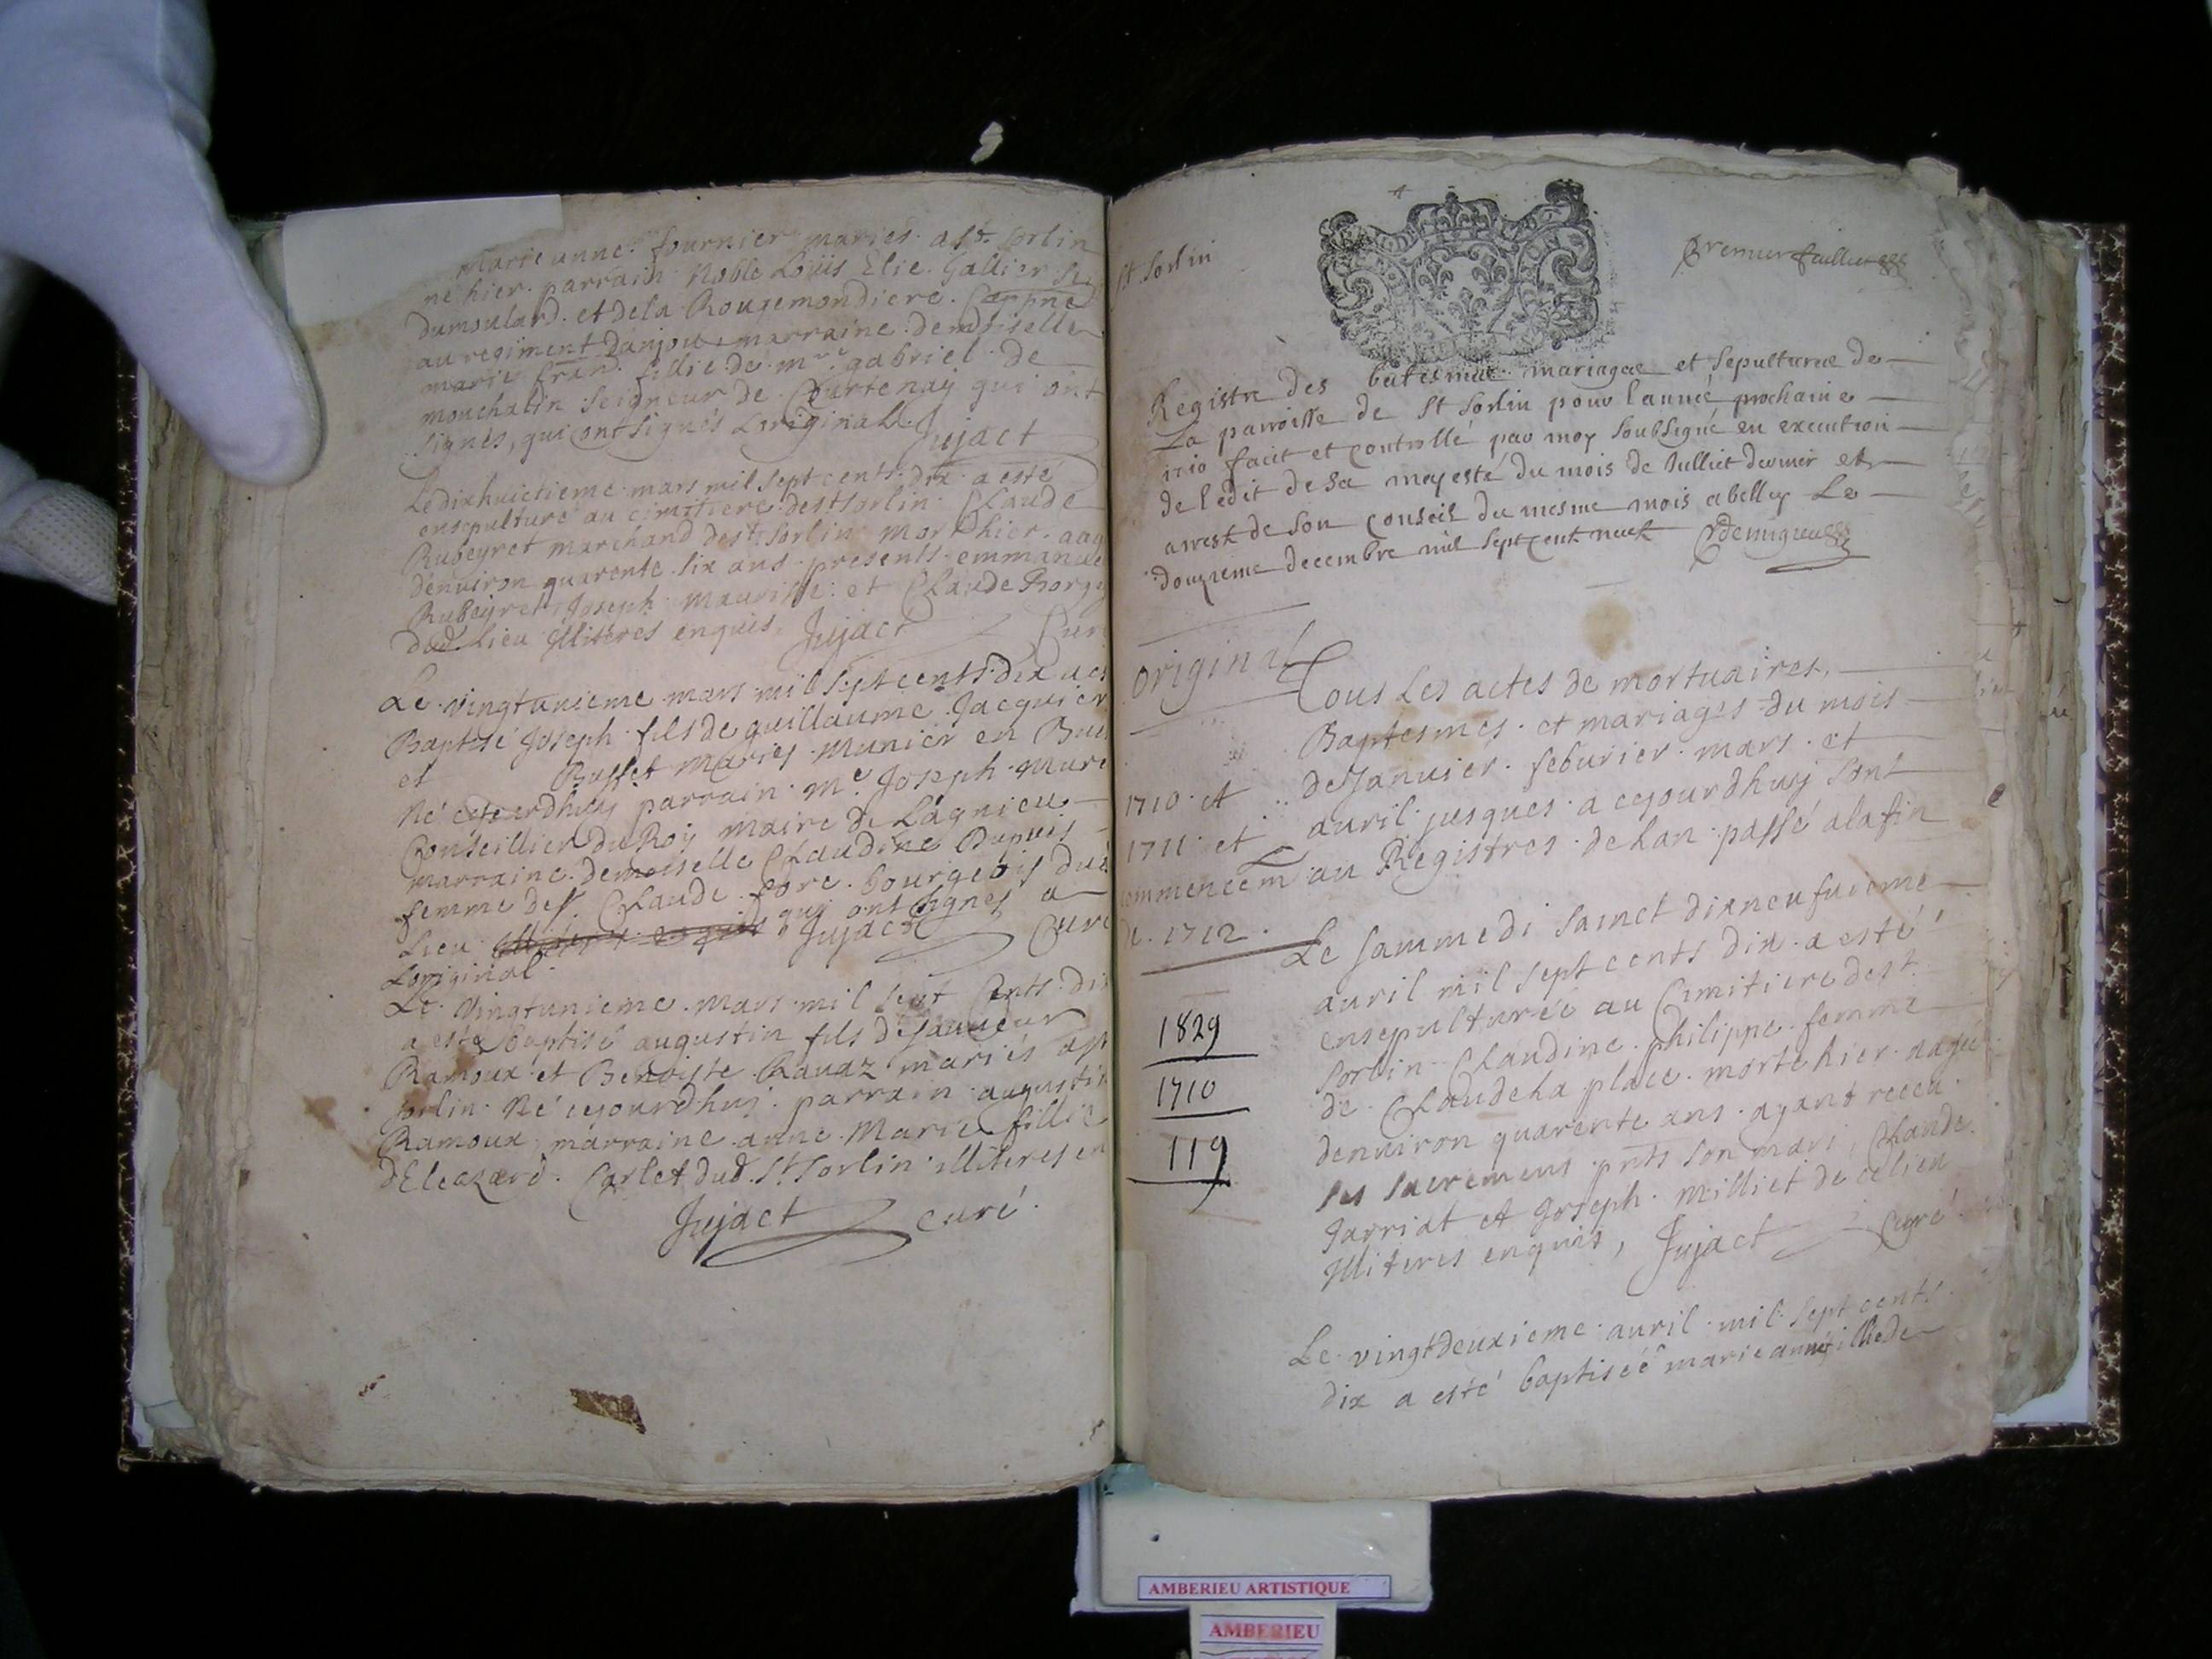 Marieanne fournier maries a st sorlin
né hier. parrain Noble Loüis Elie Gallier
dumoulard et dela Rougemondiere
au regiment danjou marraine demoiselle
marie fran. fillie de mre gabriel de
monchalin seigneur de Courtenaÿ qui ont
signés, qui ont signés Loriginall. Jujact
Le dixhuictieme mars mil sept cents dix a esté
ensepulturé au cimitiere de st sorlin Claude
Rubeyret marchand de st sorlin mort hier aag
denviron quarente six ans presents emmanuel
Rubeyret Joseph maurisse et Claude
dud. Lieu Illiteres enquis. Jujact Curé
Le vingtunieme mars mil sept cents dix a es
Baptisé Joseph fils de guillaume Jacquier
et Buffet maries munier en
Né cejourdhuy parrain Me Joseph
Conseillier du Roy maire de Lagnieu
marraine demoiselle Claudine Dupuis
femme de sr. Claude fore bourgeois dud
Lieu qui ont signes a
Loriginal. Jujact Curé
Le vingtunieme mars mil sept Cents dix
a esté baptisé augustin fils de sauveur
Ramoux et Benoiste Ravaz mariés a st
sorlin Né cejourdhuy parrain augustin
Ramoux, marraine anne Marie fillie
dEleazard Carlet dud. St Sorlin illiteres en
Jujact curé
St Sorlin
premier feuillet
Registre des batesmes mariages et sepultures de
La parroisse de St Sorlin pour l'année prochaine
1710 fait et controllé par moy soubsigné en execution
de l'edit de sa majesté du mois de Julliet dernier et
arrest de son Conseil du mesme mois a belley Le
douzieme decembre mil sept cent neuf
original
Tous Les actes de mortuaires,
Baptesmes et mariages du mois
de Janvier feburier mars et
avril jusques a cejourdhuy sont
au Registres de Lan passé a la fin
1710 et
1711 et
commencem
de 1712.
1829
1710
119
Le sammedi sainct dixneufuieme
avril mil sept cents dix a esté
ensepulturée au Cimitiere de st
sorlin Claudine philippe femme
de Claude La place morte hier aagée
denviron quarente ans ayant receu
ses sacremens pnts son mari, Claude
Jarriat et Joseph milliet de ce lieu
Illiteres enquis, Jujact Curé
Le vingtdeuxieme avril mil sept cents
dix a esté baptisée marieanne fillie de
AMBERIEU ARTISTIQUE
AMBERIEU